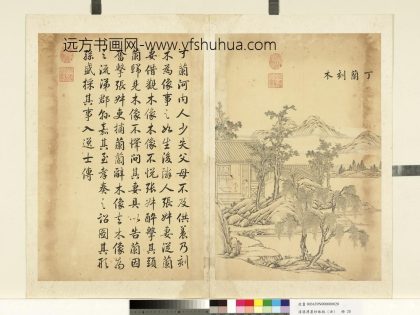 远方书画网-www.yfshuhua.com
丁蘭刻木
丁蘭河內人少失父母不及供養乃刻
木為像事之如生後鄰人張叔妻從蘭
妻借觀木像木像不悅張叔醉擊其頭
蘭歸見木像不懌問其妻具以告蘭因
奮擊張叔吏捕蘭蘭辭木像去木像為
之流涕郡縣嘉其至孝奏之詔圖其形
孫盛採其事入逸士傳